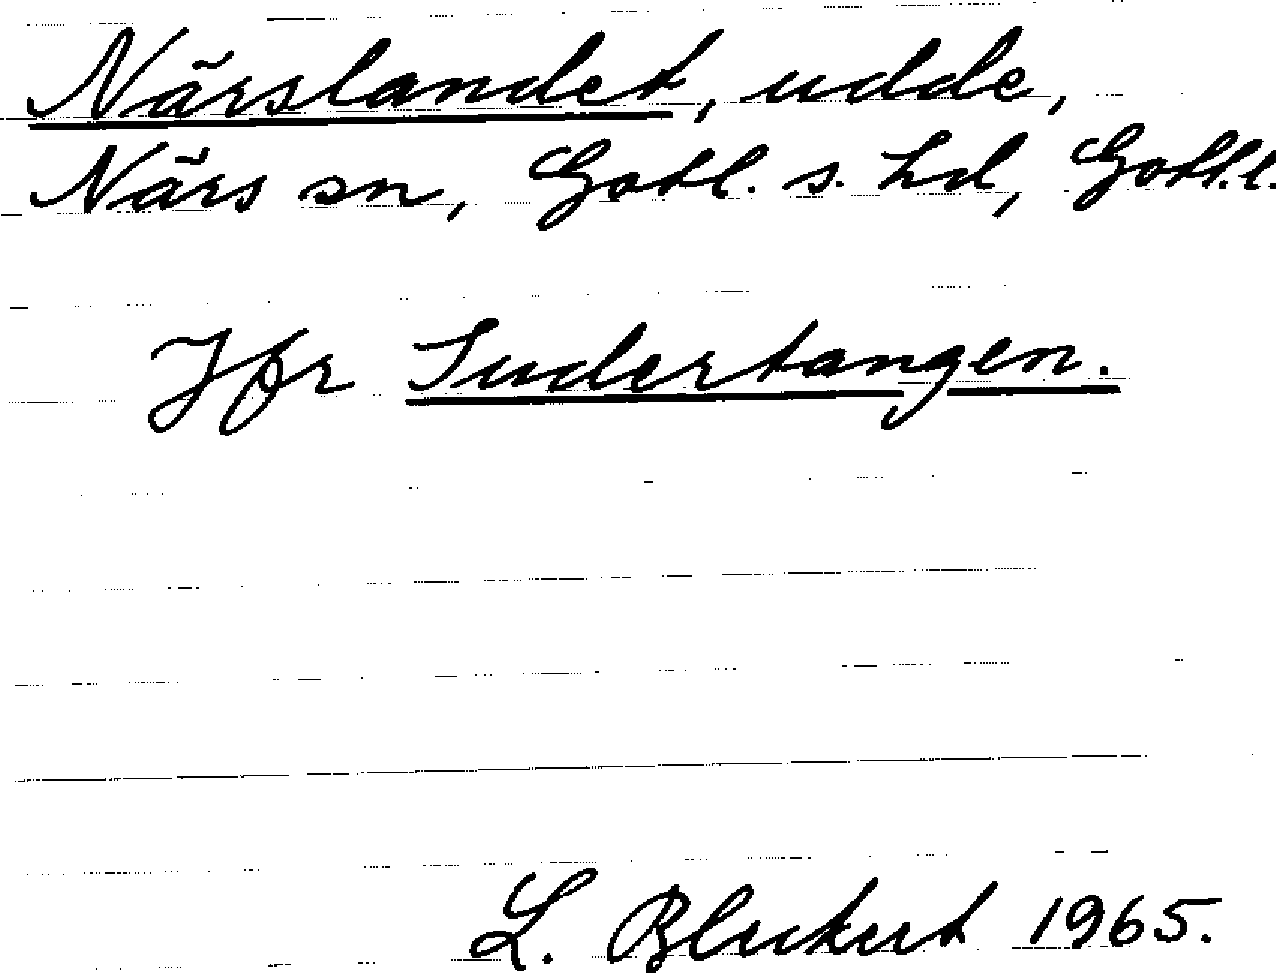 Närslandet, udde,
Närs sn, Gotl. s. hd, Gotl.l.
Jfr Sudertangen.
L. Blekert 1965.